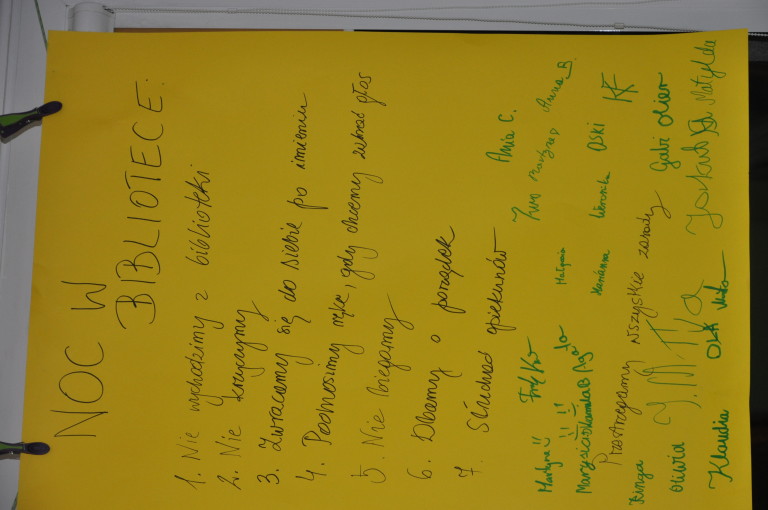 NOC W
BIBLIOTECE:
1. Nie wychodzimy z biblioteki
2. Nie krzyczymy
3. Zwracamy się do siebie po imieniu
4. Podnosimy rękę, gdy chcemy zabrać głos
5. Nie biegamy
6. Dbamy o porządek
7. Słuchać opiekunów
Ania C.
Martyna Anna B.
Marysia Kamila B Aga
Marianna Weronika OSKI KF
Przestrzegamy wszystkie zasady
Kinga Gabi Oliwer
Oliwia Jakub Matylda
Klaudia OLA